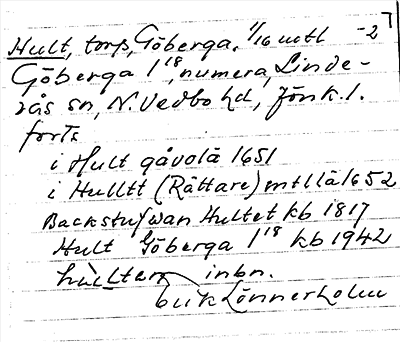 Hult, torp, Göberga, 1/16 mtl -27
Göberga 1¹⁸, numera, Linde-
rås sn, N. Vedbo hd, Jönk. l.
forts
i Hult gåvolä 1651
i Hulltt (Rättare) mtllä 1652
Backstufwan Hultet kb 1817
Hult Göberga 1¹⁸ kb 1942
hùlltən inbn.
Lönnerholm